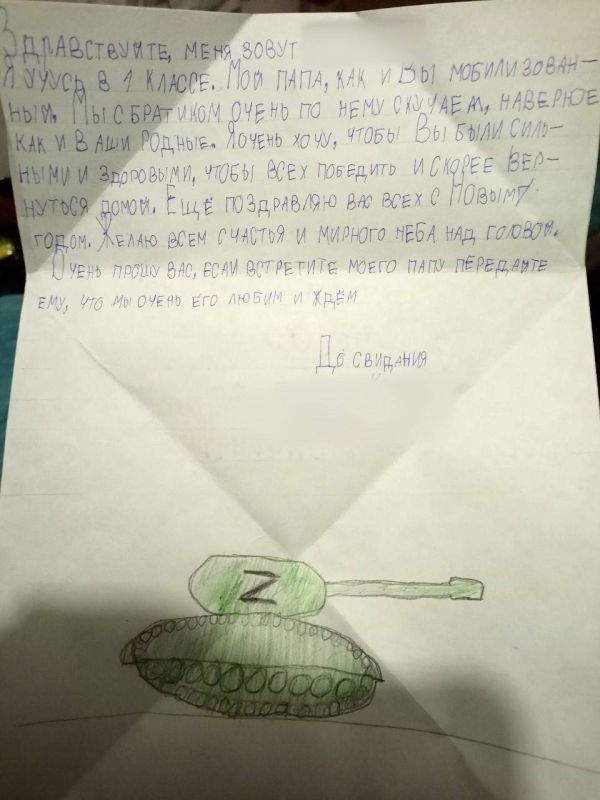 Здравствуйте, меня зовут
Я учусь в 1 классе. Мой папа, как и Вы мобилизован-
ный. Мы с братиком очень по нему скучаем, наверное
как и Ваши родные. Я очень хочу, чтобы Вы были силь-
ными и здоровыми, чтобы всех победить и скорее вер-
нуться домой. Ещё поздравляю вас всех с Новым
годом. Желаю всем счастья и мирного неба над головой.
Очень прошу вас, если встретите моего папу передайте
ему, что мы очень его любим и ждём
До свидания
Z